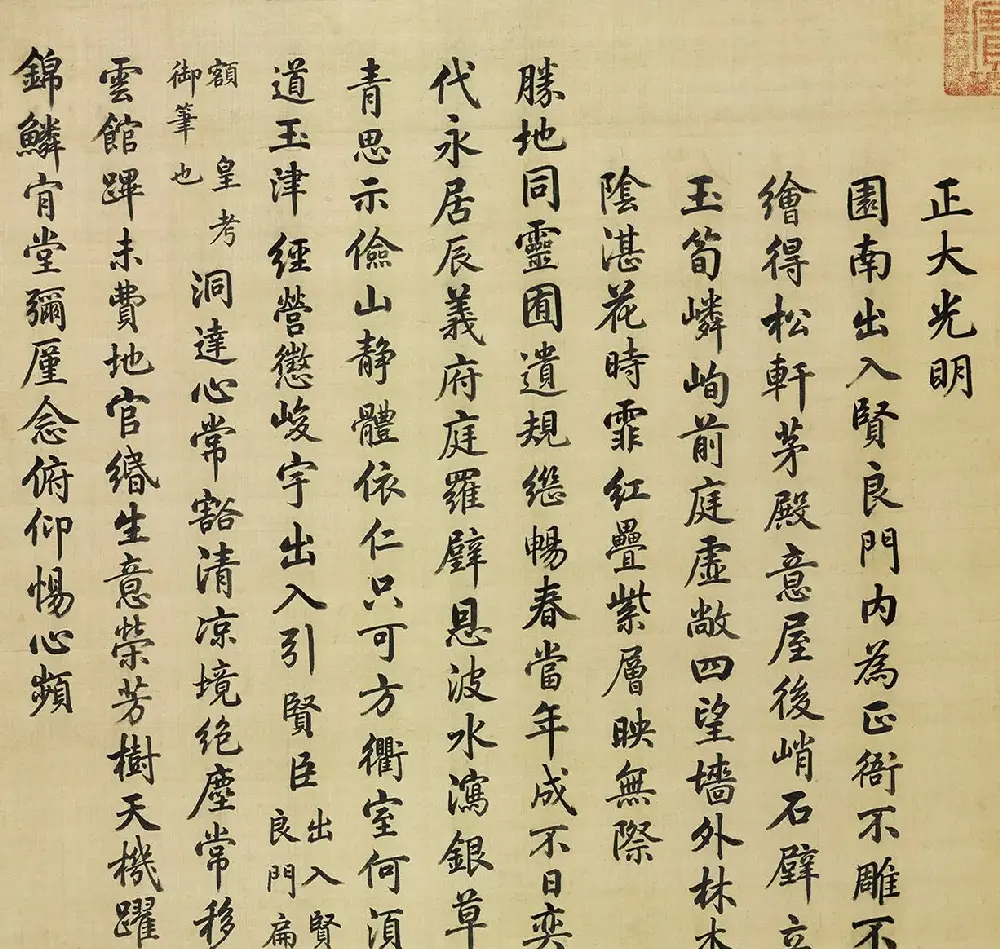 正大光明
園南出入賢良門內為正衙不雕不
繪得松軒茅殿意屋後峭石壁立
玉筍嶙峋前庭虛敞四望墻外林木
陰湛花時霏紅疊紫層映無際
勝地同靈囿遺規繼暢春當年成不日奕
代永居辰義府庭羅壁恩波水瀉銀草
青思示儉山靜體依仁只可方衢室何須
道玉津經營懲峻宇出入引賢臣
出入賢
良門扁
額 皇考
御筆也
洞達心常豁清涼境絕塵常移
雲館蹕未費地官緡生意榮芳樹天機躍
錦鱗肯堂彌廑念俯仰惕心頻